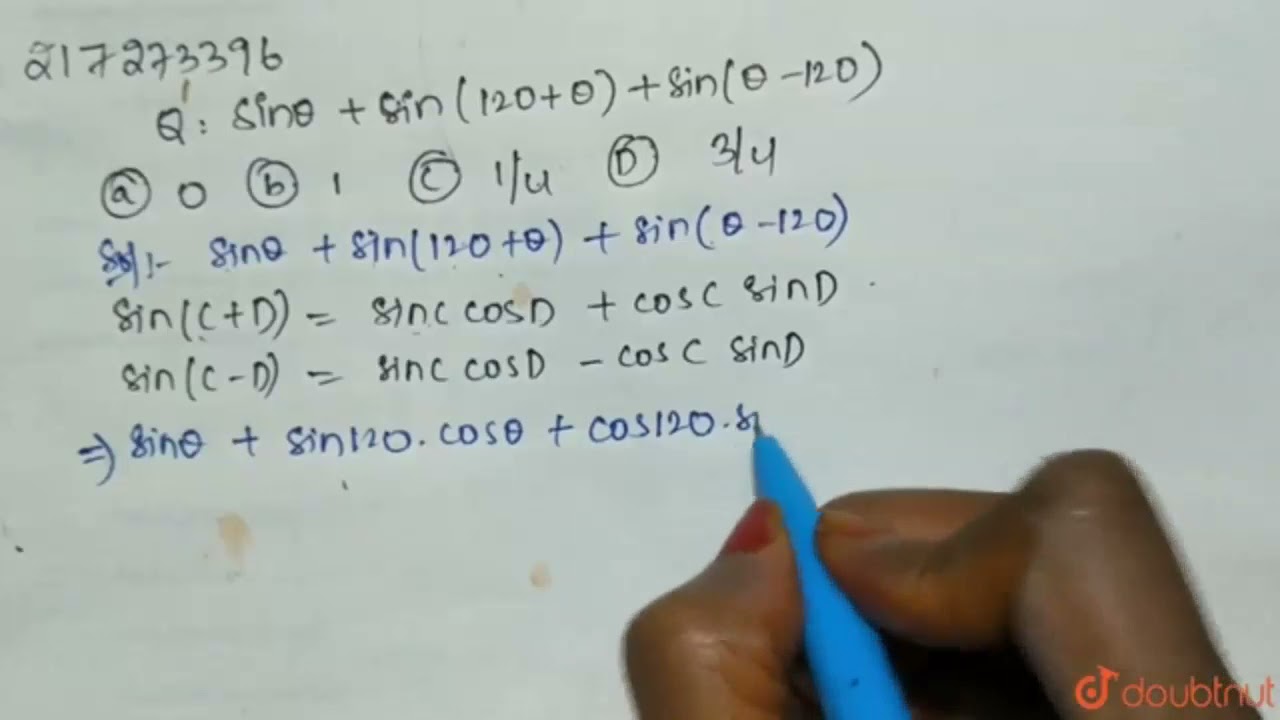 217273396
Q: sinθ + sin(120+θ) + sin(θ-120)
(a) 0 (b) 1 (C) 1/4 (D) 3/4
Sol:- sinθ + sin(120+θ) + sin(θ-120)
sin(C+D) = sinC cosD + cosC sinD
sin(C-D) = sinC cosD - cosC sinD
⇒ sinθ + sin120.cosθ + cos120.s
doubtnut